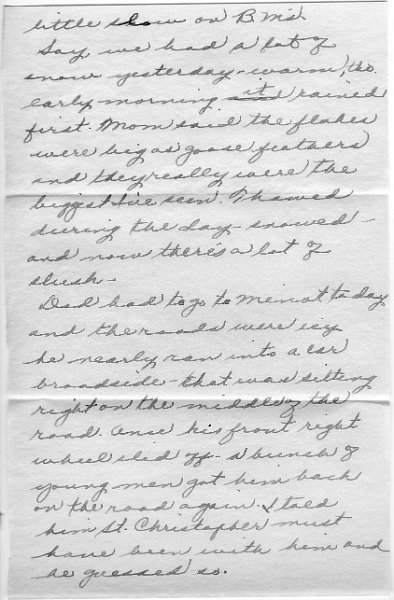 little show on B M's.
Say we had a lot of
snow yesterday - warm, tho.
early morning it rained
first. Mom said the flakes
were big as goose feathers
and they really were the
biggest I've seen. Thawed
during the day - snowed -
and now there's a lot of
slush -
Dad had to go to Minot today
and the roads were icy
he nearly ran into a car
broadside - that was sitting
right on the middle of the
road. Once his front right
wheel slid off - a bunch of
young men got him back
on the road again. I told
him St. Christopher must
have been with him and
he guessed so.